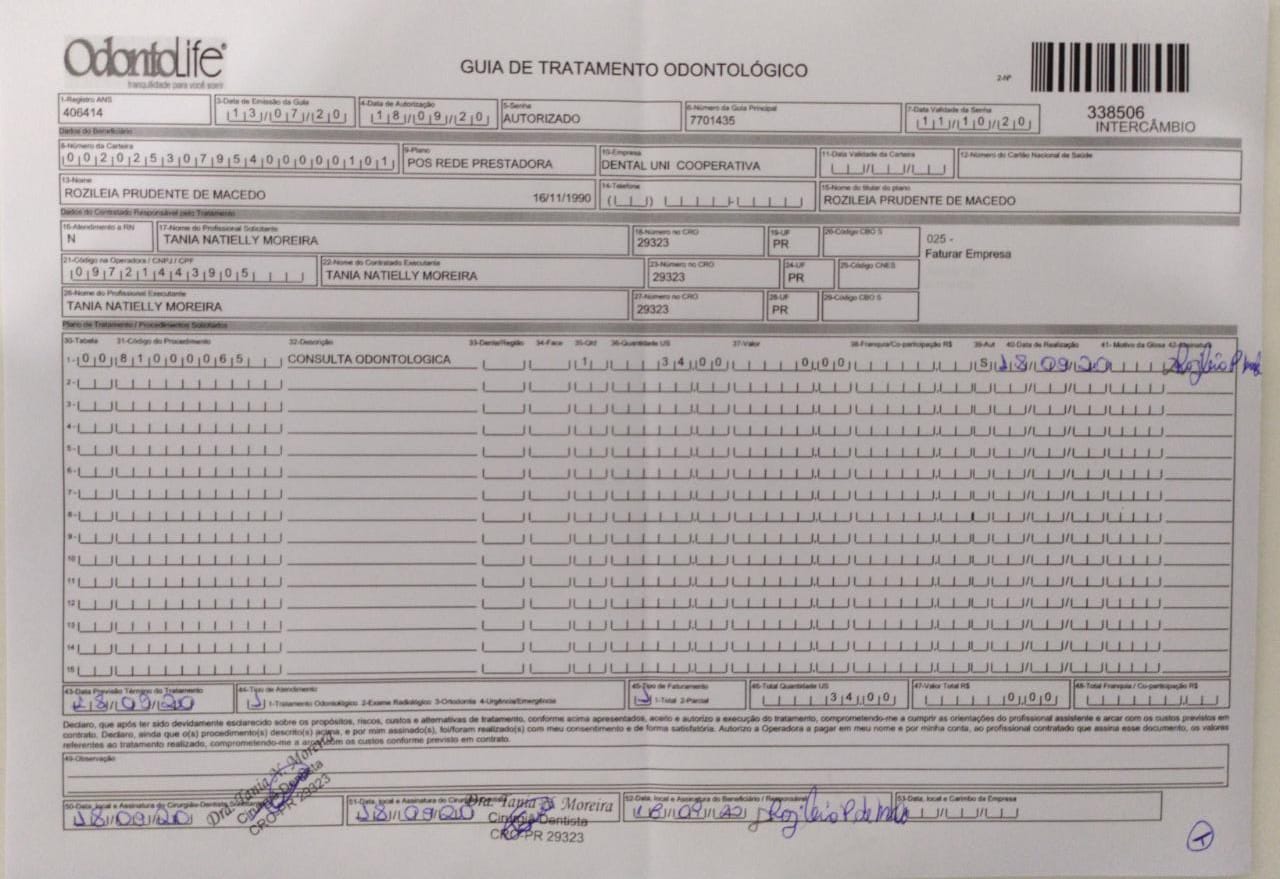 OdontoLife
tranquilidade para você sorrir
GUIA DE TRATAMENTO ODONTOLÓGICO
2-Nº
338506
INTERCÂMBIO
1-Registro ANS
406414
3-Data de Emissão da Guia
13/07/20
4-Data de Autorização
18/09/20
5-Senha
AUTORIZADO
6-Número da Guia Principal
7701435
7-Data Validade da Senha
11/10/20
Dados do Beneficiário
8-Número da Carteira
00202530795400000101
9-Plano
POS REDE PRESTADORA
10-Empresa
DENTAL UNI COOPERATIVA
11-Data Validade da Carteira
12-Número do Cartão Nacional de Saúde
13-Nome
ROZILEIA PRUDENTE DE MACEDO
16/11/1990
14-Telefone
15-Nome do titular do plano
ROZILEIA PRUDENTE DE MACEDO
Dados do Contratado Responsável pelo Tratamento
16-Atendimento a RN
N
17-Nome do Profissional Solicitante
TANIA NATIELLY MOREIRA
18-Número no CRO
29323
19-UF
PR
20-Código CBO S
025 -
Faturar Empresa
21-Código na Operadora / CNPJ / CPF
09721443905
22-Nome do Contratado Executante
TANIA NATIELLY MOREIRA
23-Número no CRO
29323
24-UF
PR
25-Código CNES
26-Nome do Profissional Executante
TANIA NATIELLY MOREIRA
27-Número no CRO
29323
28-UF
PR
29-Código CBO S
Plano de Tratamento / Procedimentos Solicitados
30-Tabela 31-Código do Procedimento 32-Descrição 33-Dente/Região 34-Face 35-Qtd 36-Quantidade US 37-Valor 38-Franquia/Co-participação R$ 39-Aut 40-Data de Realização 41- Motivo da Glosa 42-Assinatura
1- 00 81000065 CONSULTA ODONTOLOGICA 1 34,00 0,00 S 18/09/20
2-
3-
4-
5-
6-
7-
8-
9-
10
11
12
13
14
15
43-Data Previsão Término do Tratamento
18/09/20
44-Tipo de Atendimento
1 1-Tratamento Odontológico 2-Exame Radiológico 3-Ortodontia 4-Urgência/Emergência
45-Tipo de Faturamento
1 1-Total 2-Parcial
46-Total Quantidade US
34,00
47-Valor Total R$
0,00
48-Total Franquia / Co-participação R$
Declaro, que após ter sido devidamente esclarecido sobre os propósitos, riscos, custos e alternativas de tratamento, conforme acima apresentados, aceito e autorizo a execução do tratamento, comprometendo-me a cumprir as orientações do profissional assistente e arcar com os custos previstos em
contrato. Declaro, ainda que o(s) procedimento(s) descrito(s) acima, e por mim assinado(s), foi/foram realizado(s) com meu consentimento e de forma satisfatória. Autorizo a Operadora a pagar em meu nome e por minha conta, ao profissional contratado que assina esse documento, os valores
referentes ao tratamento realizado, comprometendo-me a arcar com os custos conforme previsto em contrato.
49-Observação
50-Data, local e Assinatura do Cirurgião-Dentista Solicitante
18/09/20
Dra. Tania N. Moreira
Cirurgiã Dentista
CRO-PR 29323
51-Data, local e Assinatura do Cirurgião
18/09/20
Dra. Tania N. Moreira
Cirurgiã Dentista
CRO-PR 29323
52-Data, local e Assinatura do Beneficiário / Responsável
18/09/20
53-Data, local e Carimbo da Empresa